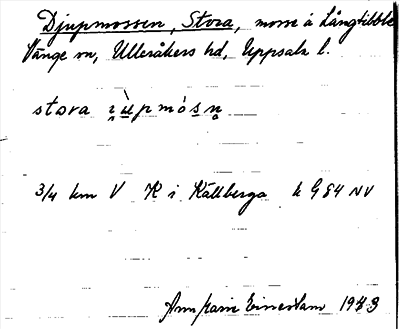 Djupmossen, Stora, mosse å Långtibble
Vänge sn, Ulleråkers hd, Uppsala l.
stora ɟùpmósn̥
3/4 km V K i Källberga k G 84 NV
Einerstam 1943